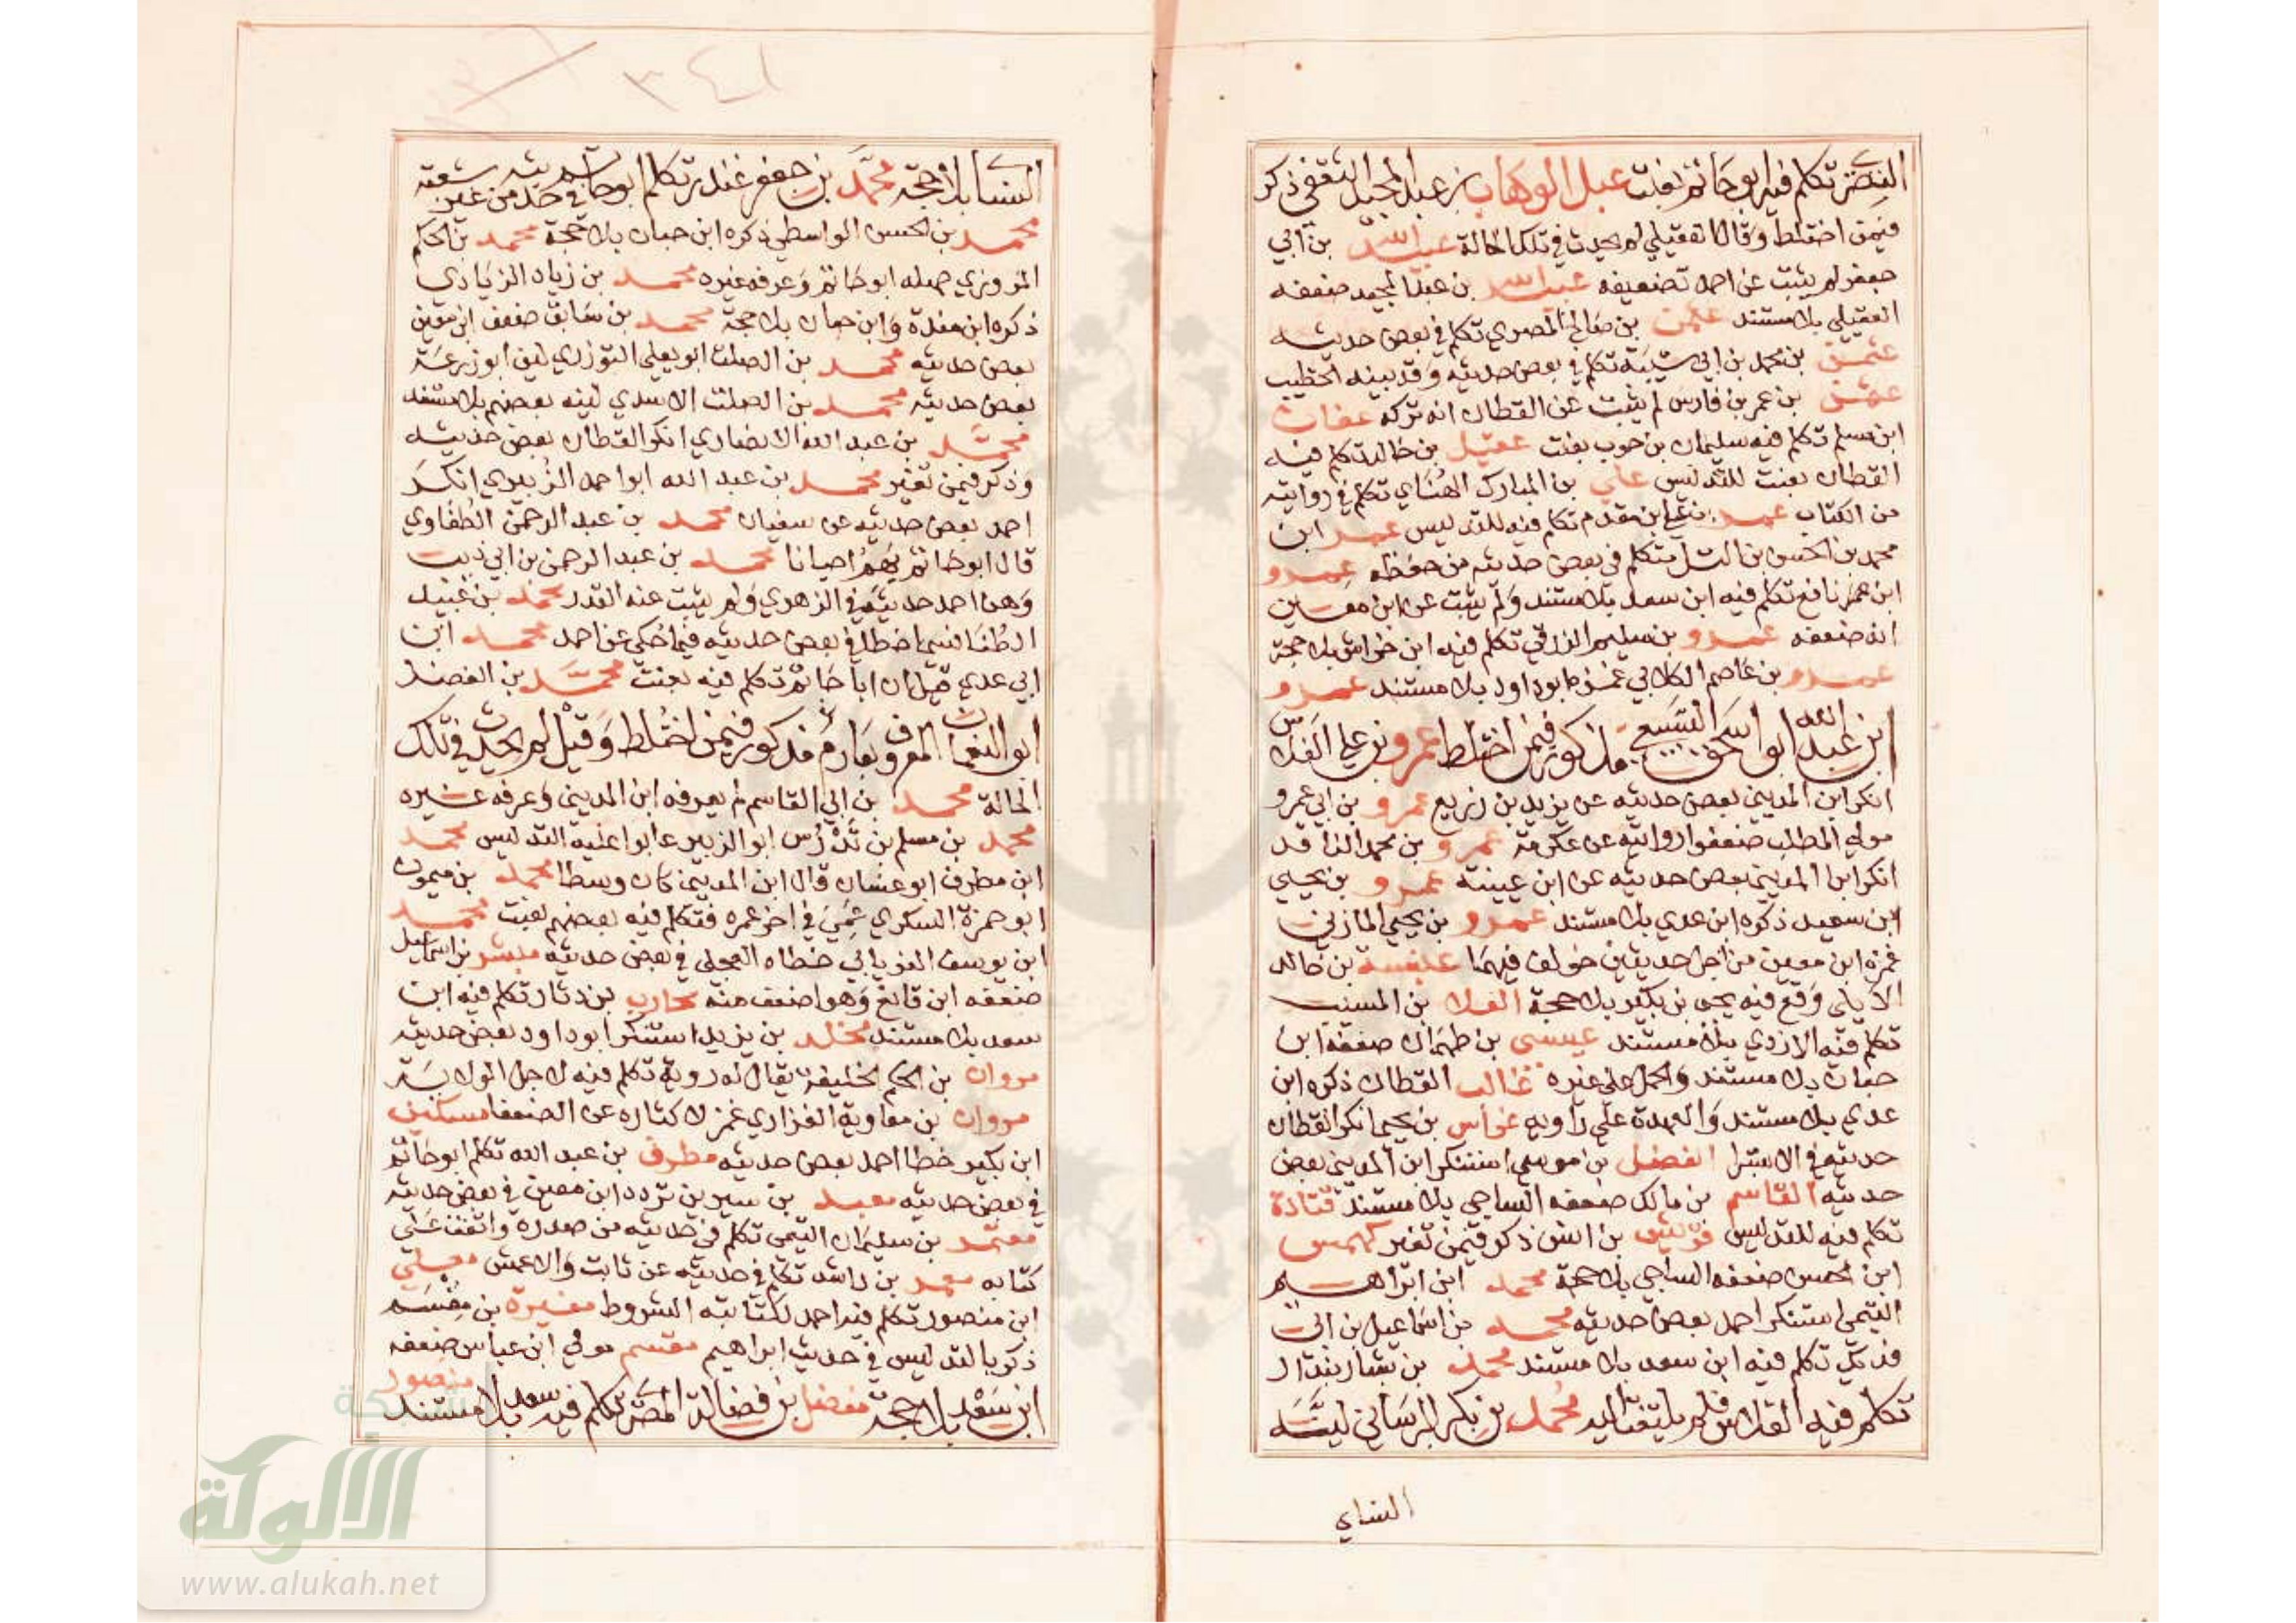 النضر تكلم فيه ابو حاتم بعنت عبد الوهاب بن عبد المجيد الثقفي ذكر
فيمن اختلط وقال العقيلي لم يحدث في تلك الحالة عبيد الله بن ابي
جعفر لم يثبت عن احمد تضعيفه عبيد الله بن عبد المجيد ضعفه
العقيلي بلا مستند عثمن بن صالح المصري تكلم في بعض حديثه
عثمن بن محمد بن ابي شيبة تكلم في بعض حديثه وقد بينه الخطيب
عثمن بن عمر بن فارس لم يثبت عن القطان انه تركه عفان
ابن مسلم تكلم فيه سليمان بن حرب بعنت عقيل بن خالد تكلم فيه
القطان بعنت للتدليس علي بن المبارك الهنائي تكلم في روايته
من الكتاب عمر بن علي ابن مقدم تكلم فيه للتدليس عمر ابن
محمد بن الحسن بن التل متكلم في بعض حديثه من حفظه عمرو
ابن عمر نافع تكلم فيه ابن سعد بلا مستند ولم يثبت عن ابن معين
انه ضعفه عمرو بن سليم الزرقي تكلم فيه ابن خراش بلا حجة
عمرو بن عاصم الكلابي غمزه ابو داود بلا مستند عمرو
ابن عبد الله ابو اسحق السبيعي مذكور فيمن اختلط عمرو بن علي الفلاس
انكر ابن المديني بعض حديثه عن يزيد بن زريع عمرو بن ابي عمرو
مولى المطلب ضعفوا روايته عن عكرمة عمرو بن محمد الناقد
انكر ابن المديني بعض حديثه عن ابن عيينة عمرو بن يحيى
ابن سعيد ذكره ابن عدي بلا مستند عمرو بن يحيى المازني
غمزه ابن معين من اجل حديثين خولف فيهما عنبسة بن خالد
الايلي وقع فيه يحيى بن بكير بلا حجة العلا بن المسيب
تكلم فيه الازدي بلا مستند عيسى بن طهمان ضعفه ابن
حبان بلا مستند والحمل على غيره غالب القطان ذكره ابن
عدي بلا مستند والعهدة على راويه فراس بن يحيى انكر القطان
حديثه في الاستبرا الفضل بن موسى استنكر ابن المديني بعض
حديثه القاسم بن مالك ضعفه الساجي بلا مستند قتادة
تكلم فيه للتدليس قريش بن انس ذكر فيمن تغير كهمس
ابن الحسن ضعفه الساجي بلا حجة محمد ابن ابراهيم
التيمي استنكر احمد بعض حديثه محمد بن اسماعيل بن ابي
فديك تكلم فيه ابن سعد بلا مستند محمد بن بشار بندار
تكلم فيه الفلاس فلم يلتفت اليه محمد بن بكر البرساني لينه
النساي
النسا بلا حجة محمد بن جعفر غندر تكلم ابو حاتم في حديثه من غير شعبة
محمد بن الحسن الواسطي ذكره ابن حبان بلا حجة محمد بن الحكم
المروزي جهله ابو حاتم وعرفه غيره محمد بن زياد الزيادي
ذكره ابن مندة وابن حبان بلا حجة محمد بن سابق ضعف ابن معين
بعض حديثه محمد بن الصلت ابو يعلى التوزي لين ابو زرعة
بعض حديثه محمد بن الصلت الاسدي لينه بعضهم بلا مستند
محمد بن عبد الله الانصاري انكر القطان بعض حديثه
وذكر فيمن تغير محمد بن عبد الله ابو احمد الزبيري انكر
احمد بعض حديثه عن سفيان محمد بن عبد الرحمن الطفاوي
قال ابو حاتم يهم احيانا محمد بن عبد الرحمن بن ابي ذيب
وهن احمد حديثه في الزهري ولم يثبت عنه القدر محمد بن عبيد
الطنافسي اخطا في بعض حديثه فيما حكي عن احمد محمد ابن
ابي عدي قيل ان ابا حاتم تكلم فيه بعنت محمد بن الفضل
ابو النعمان المعروف بعارم مذكور فيمن اختلط وقيل لم يحدث في تلك
الحالة محمد بن ابي القاسم لم يعرفه ابن المديني وعرفه غيره
محمد بن مسلم بن تدرس ابو الزبير عابوا عليه التدليس محمد
ابن مطرف ابو غسان قال ابن المديني كان وسطا محمد بن ميمون
ابو حمزة السكري عمي في اخر عمره فتكلم فيه بعضهم بعنت محمد
ابن يوسف الفريابي خطاه العجلي في بعض حديثه مبشر بن اسماعيل
ضعفه ابن قانع وهو اضعف منه محارب بن دثار تكلم فيه ابن
سعد بلا مستند مخلد بن يزيد استنكر ابو داود بعض حديثه
مروان بن الحكم الخليفة يقال له روية تكلم فيه لاجل الولاية
مروان بن معاوية الفزاري غمز لاكثاره عن الضعفا مسكين
ابن بكير خطا احمد بعض حديثه مطرف بن عبد الله تكلم ابو حاتم
في بعض حديثه معبد بن سيرين تردد ابن معين في بعض حديثه
معتمر بن سليمان التيمي تكلم في حديثه من صدره واتفق على
كتابه معمر بن راشد تكلم في حديثه عن ثابت والاعمش معلى
ابن منصور تكلم فيه احمد لكتابته الشروط مغيرة بن مقسم
ذكر بالتدليس في حديث ابراهيم مقسم مولى ابن عباس ضعفه
ابن سعد بلا حجة مفضل بن فضالة المصري تكلم فيه ابن سعد بلا مستند منصور
شبكة
الألوكة
www.alukah.net